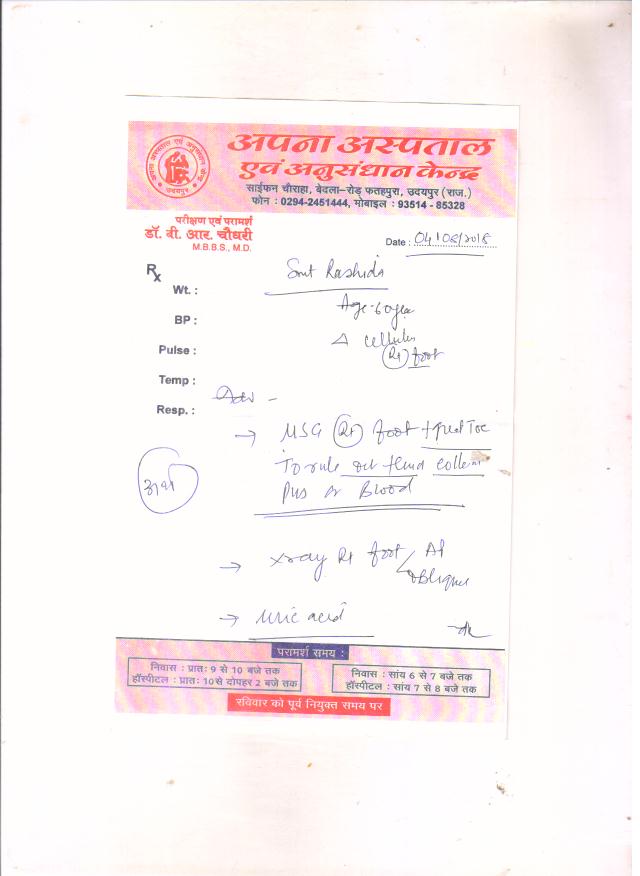 अपना अस्पताल
एवं अनुसंधान केन्द्र
साईफन चौराहा, बेदला-रोड़ फतहपुरा, उदयपुर (राज.)
फोन : 0294-2451444, मोबाइल : 93514 - 85328
परीक्षण एवं परामर्श
डॉ. बी. आर. चौधरी
M.B.B.S., M.D.
Date : 04/08/2018
Rx
Smt Rashida
Wt. :
Age - 60 year
BP :
Δ cellulitis
Pulse :
(Rt) foot
Temp :
Adv -
Resp. :
→ USG (Rt) foot + great Toe
To rule out fluid
Pus or Blood
→ xray Rt foot AP
oblique
→ uric acid
परामर्श समय :
निवास : प्रातः 9 से 10 बजे तक
हॉस्पीटल : प्रातः 10 से दोपहर 2 बजे तक
निवास : सांय 6 से 7 बजे तक
हॉस्पीटल : सांय 7 से 8 बजे तक
रविवार को पूर्व नियुक्त समय पर